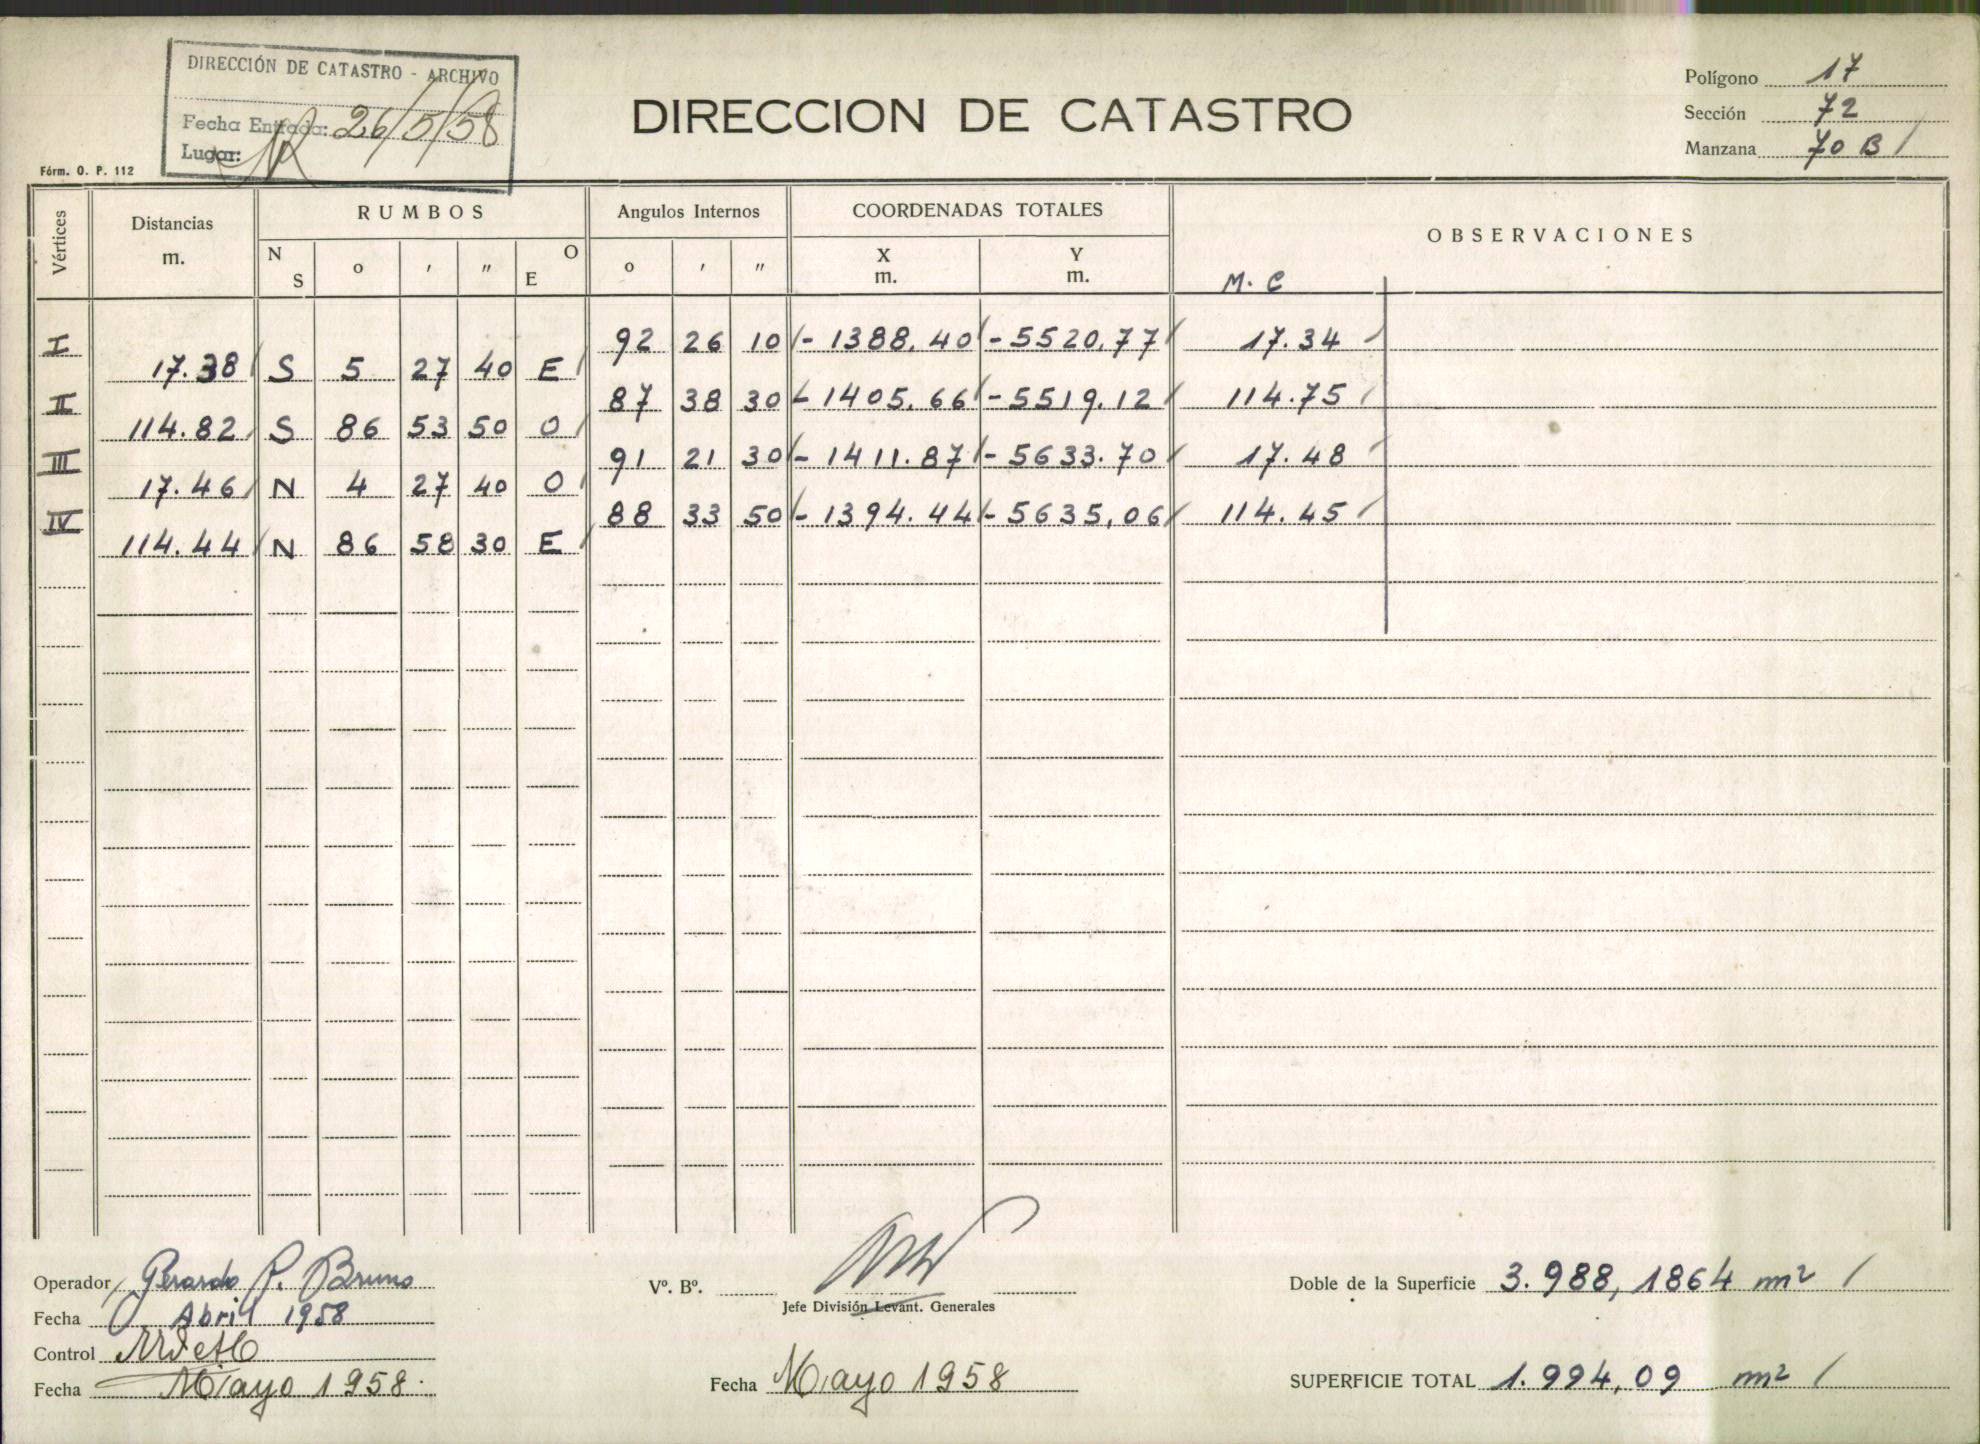 DIRECCIÓN DE CATASTRO - ARCHIVO
Fecha Entrada: 26/5/58
Lugar:
Fórm. O. P. 112
DIRECCION DE CATASTRO
Polígono 17
Sección 72
Manzana 70 B /
Vértices Distancias m. RUMBOS Angulos Internos COORDENADAS TOTALES OBSERVACIONES
N S ° ' " O E ° ' " X m. Y m. M. C
I 92 26 10 - 1388,40 - 5520,77 17.34
17.38 S 5 27 40 E
II 87 38 30 - 1405,66 - 5519,12 114.75
114.82 S 86 53 50 O
III 91 21 30 - 1411.87 - 5633.70 17.48
17.46 N 4 27 40 O
IV 88 33 50 - 1394.44 - 5635,06 114.45
114.44 N 86 58 30 E
Operador Gerardo R. Bruno
Fecha Abril 1958
Control
Fecha Mayo 1958.
Vº. Bº.
Jefe División Levant. Generales
Fecha Mayo 1958
Doble de la Superficie 3.988,1864 m² /
SUPERFICIE TOTAL 1.994,09 m² /